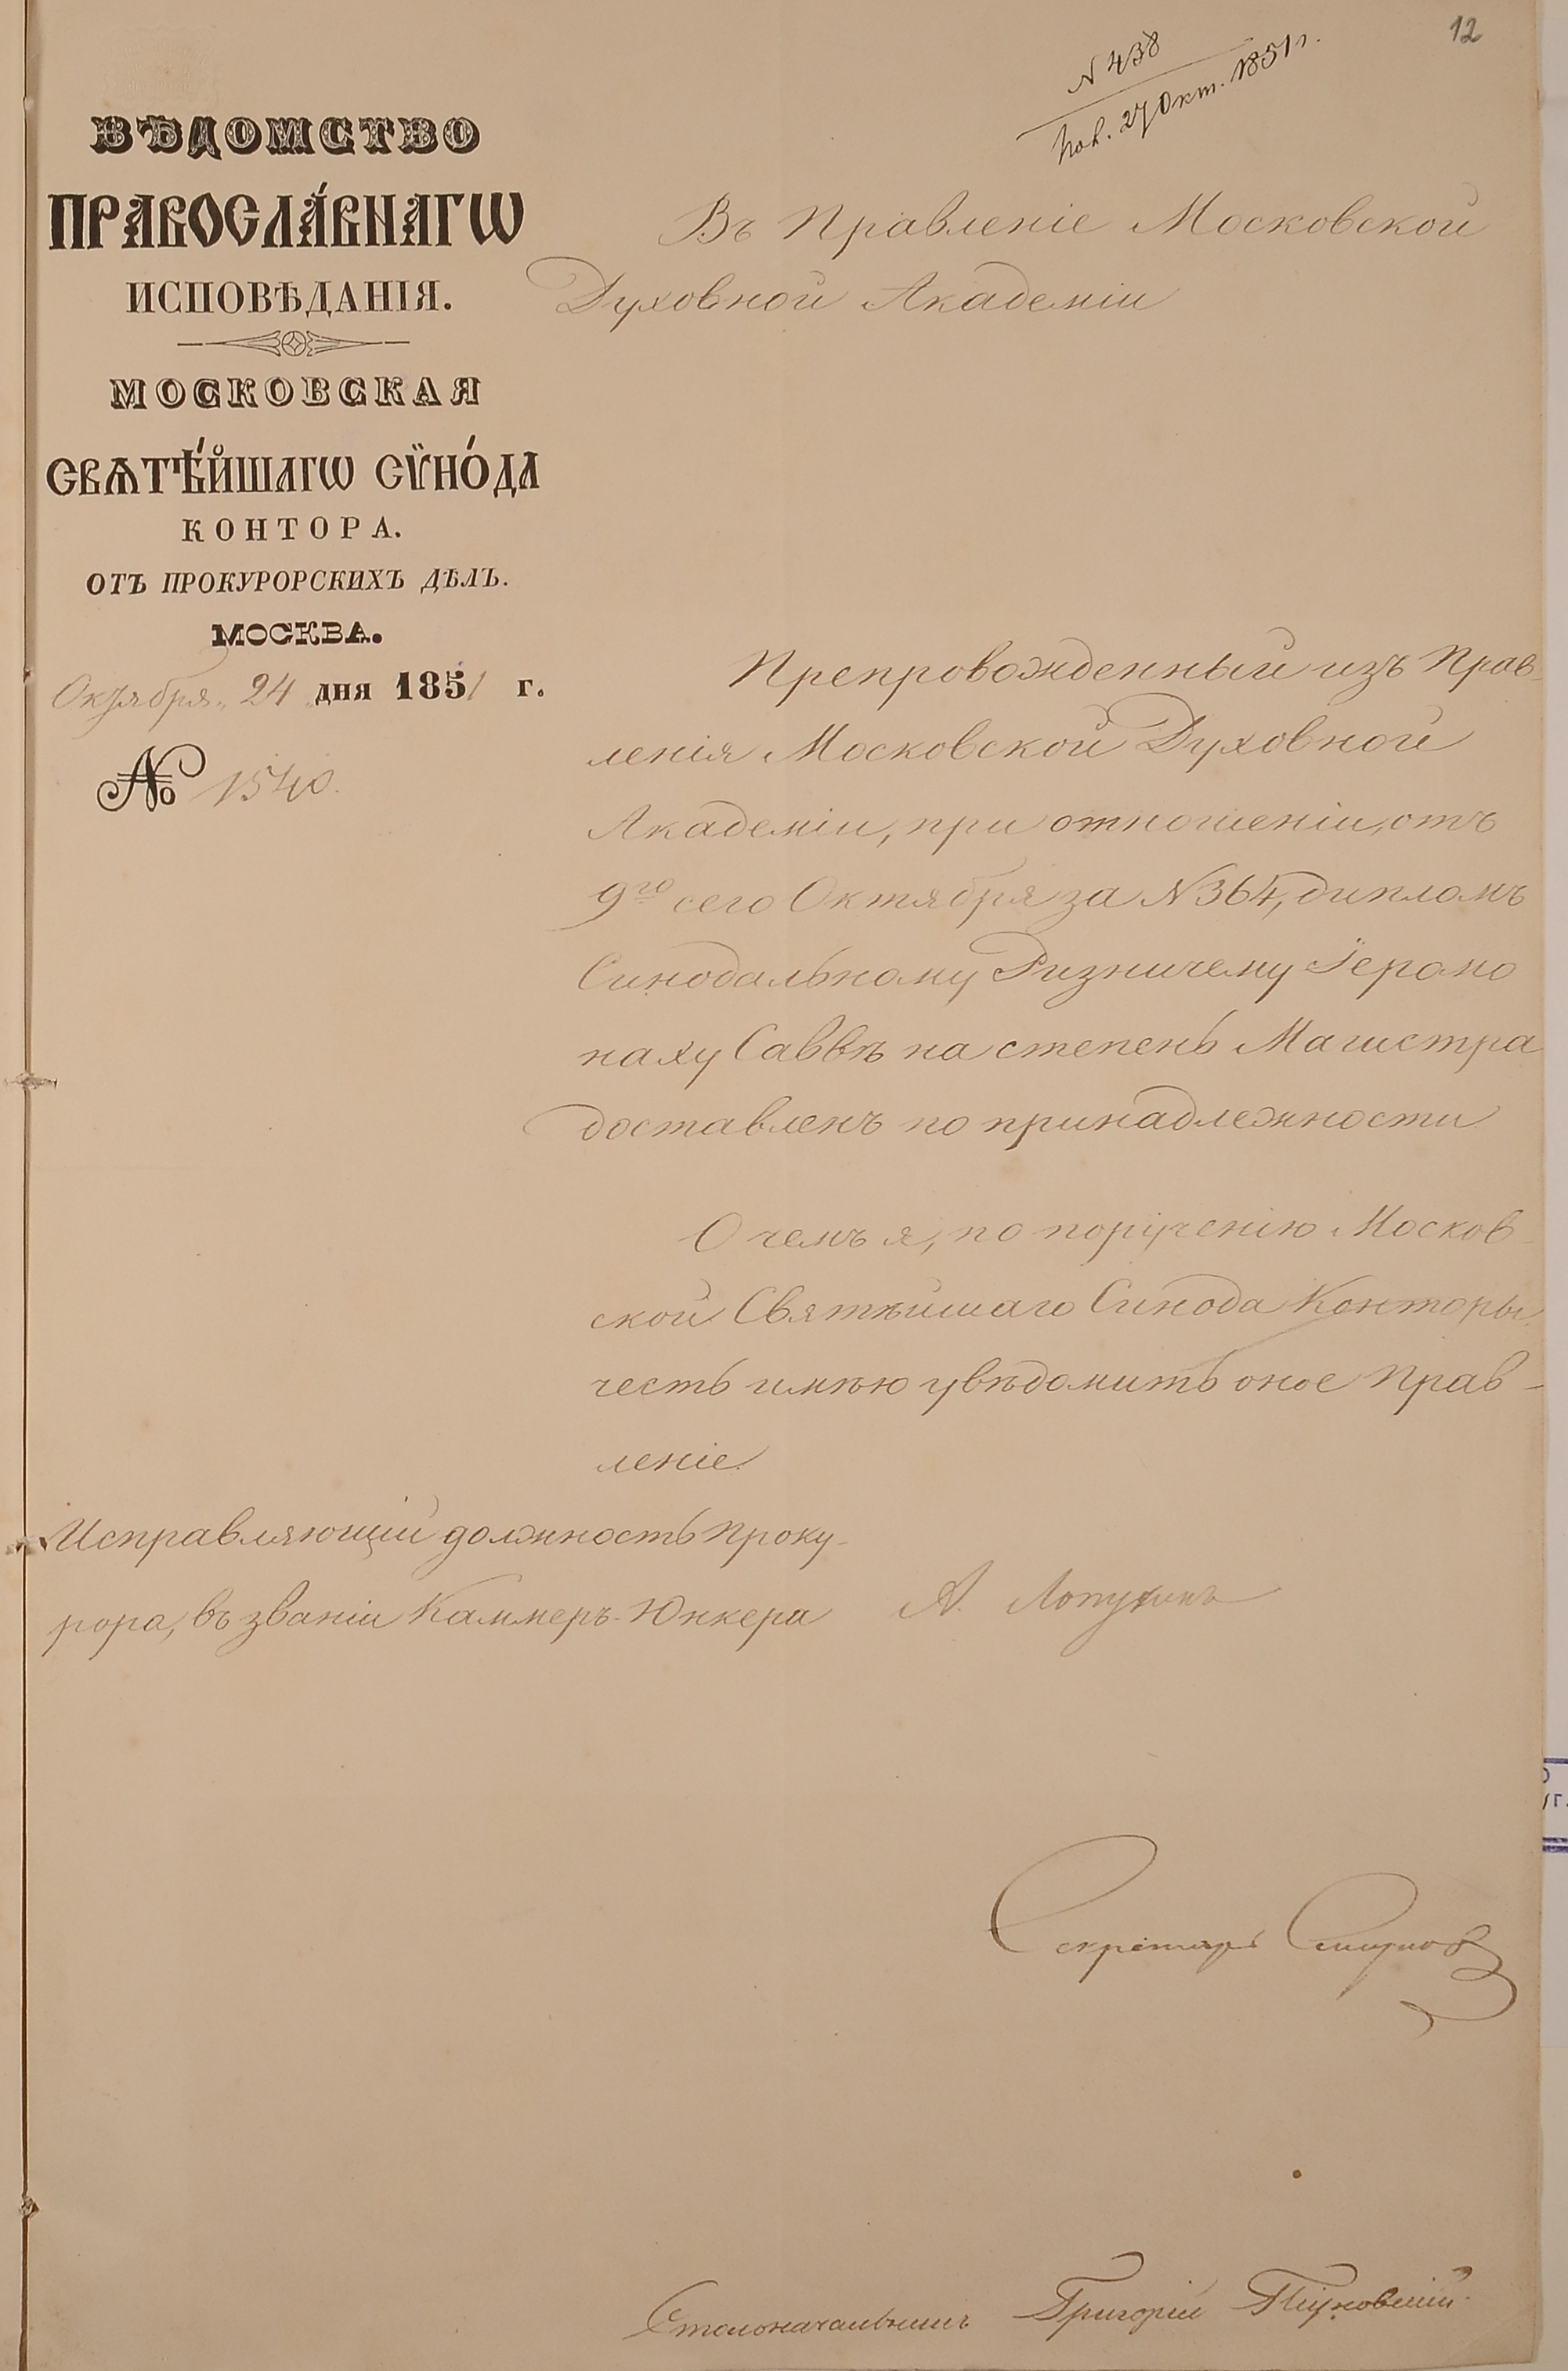 12
N 438
Пол. 27 Окт. 1851 г.
ВѢДОМСТВО
ПРАВОСЛА́ВНАГѠ
ИСПОВѢДАНІЯ.
МОСКОВСКАЯ
СВѦТѢ́ЙШАГѠ СѶНО́ДА
КОНТОРА.
ОТЪ ПРОКУРОРСКИХЪ ДѢЛЪ.
МОСКВА.
Октября 24 дня 1851 г.
№ 1540.
Въ Правленіе Московской
Духовной Академіи
Препровожденный изъ Прав-
ленія Московской Духовной
Академіи, при отношеніи, отъ
9го сего Октября за N 364, дипломъ
Синодальному Ризничему Іеромо
наху Саввѣ на степень Магистра
доставленъ по принадлежности
О чемъ я, по порученію Москов-
ской Святѣйшаго Синода Конторы,
честь имѣю увѣдомить оное Прав-
леніе.
Исправляющій должность Проку-
рора, въ званіи Каммеръ-Юнкера А. Лопухинъ
Секретарь Смирновъ
Столоначальникъ Григорій